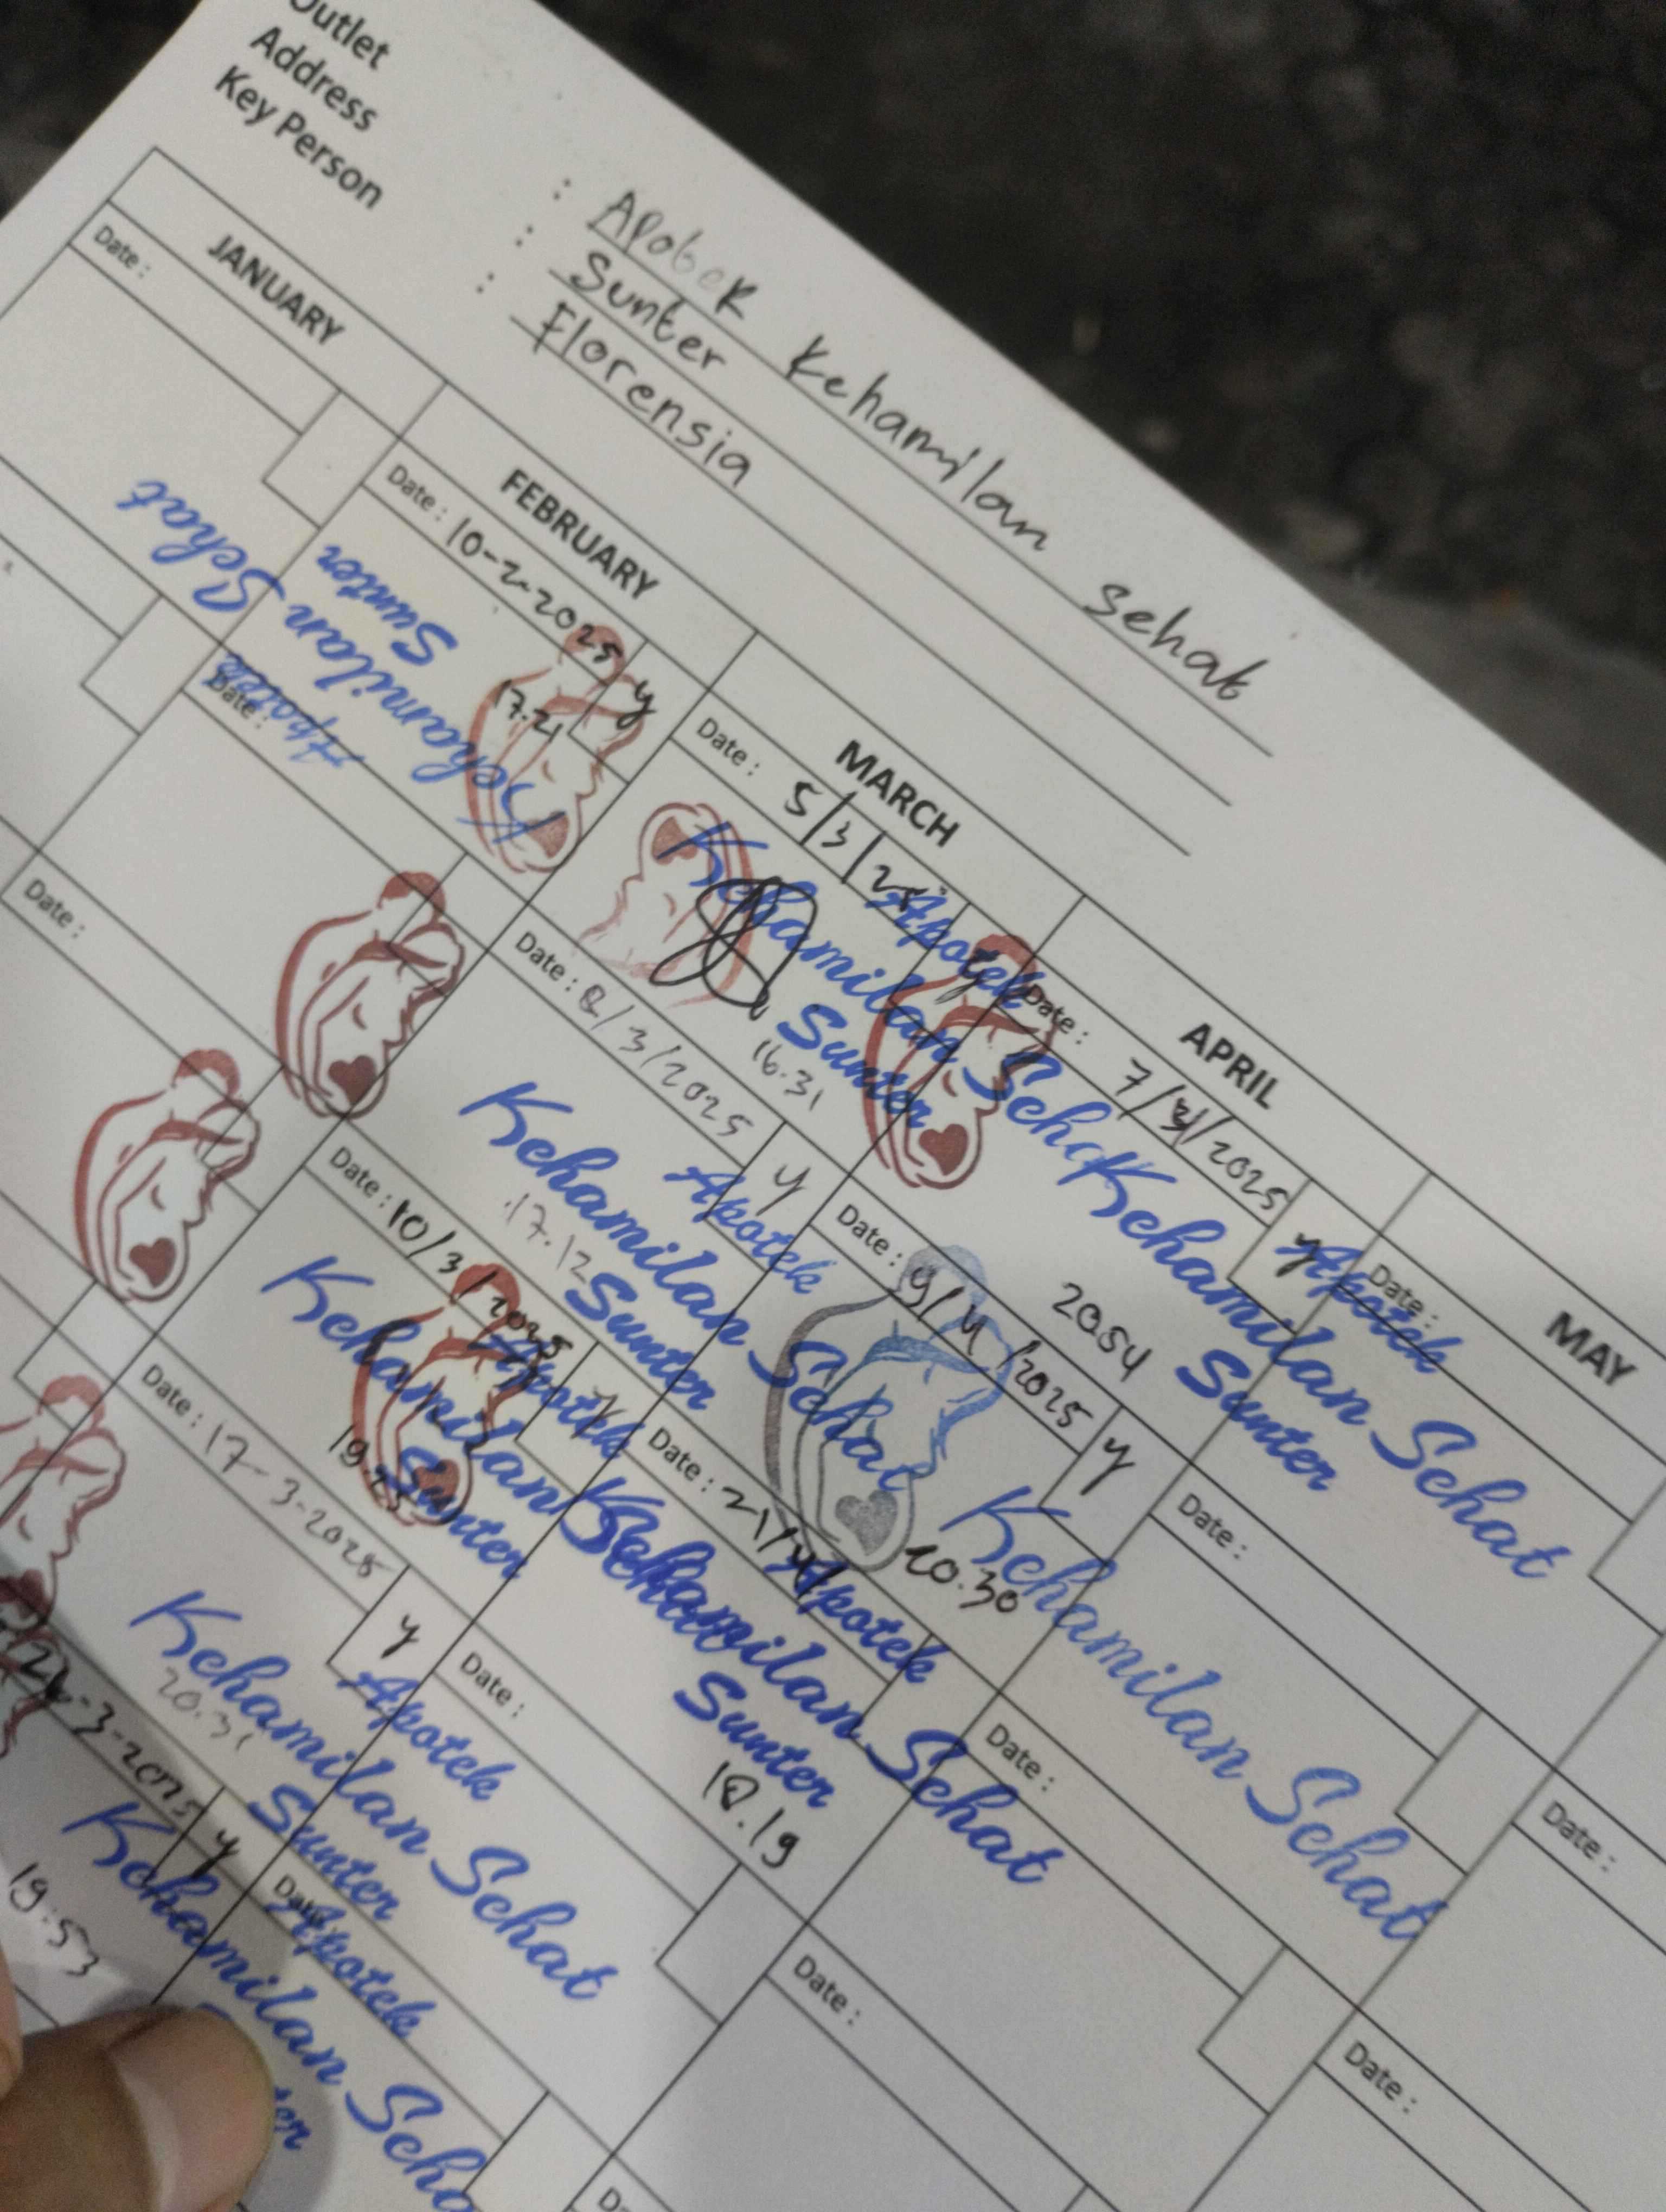 Outlet : Apotek Kehamilan Sehat
Address : Sunter
Key Person : Florensia
JANUARY
FEBRUARY
MARCH
APRIL
MAY
Date :
Date : 10-2-2025 y
17.21
Apotek
Kehamilan Sehat
Sunter
Date : 5/3/25
Apotek
Kehamilan Sehat
Sunter
16.31
Date : 7/4/2025 y
Apotek
Kehamilan Sehat
Sunter
2054
Date :
Date :
Date : 8/3/2025 y
Apotek
Kehamilan Sehat
Sunter
17.12
Date : 9/4/2025 y
Kehamilan Sehat
20.30
Date :
Date :
Date : 10/3/2025 y
Apotek
Kehamilan Sehat
Sunter
19.25
Date : 21/4/
Apotek
Kehamilan Sehat
Sunter
18.19
Date :
Date : 17-3-2025 y
Apotek
Kehamilan Sehat
Sunter
20.31
Date :
Date :
24-3-2025 y
Apotek
Kehamilan
19:53
Date :
Date :
Date :